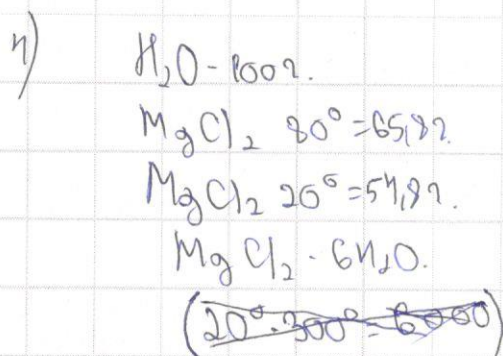 4)
H₂O - 100г.
MgCl₂ 80° = 65,8г.
MgCl₂ 20° = 54,8г.
MgCl₂ · 6H₂O.
(20° · 300° = 6000)